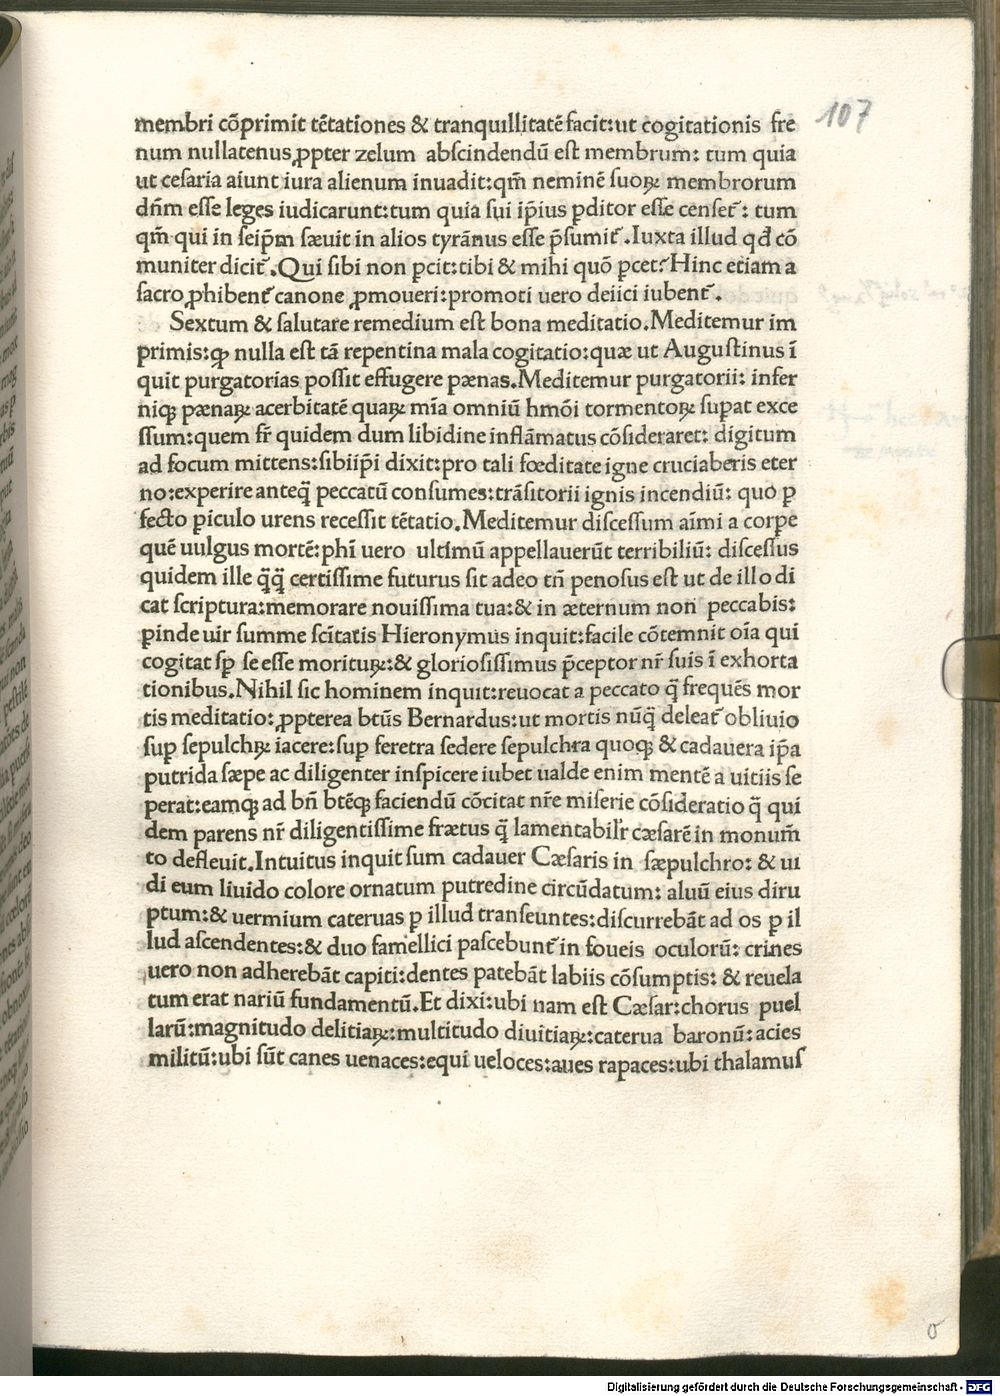 107
membri cōprimit tētationes & tranquillitatē facit:ut cogitationis fre
num nullatenus ꝓpter zelum abscindendū est membrum: tum quia
ut cesaria aiunt iura alienum inuadit:qm̄ neminē suoꝝ membrorum
dn̄m esse leges iudicarunt:tum quia sui ip̄ius ꝑditor esse censet᷑: tum
qm̄ qui in seip̄m sæuit in alios tyrānus esse p̄sumit᷑.Iuxta illud qđ cō
muniter dicit᷑.Qui sibi non ꝑcit:tibi & mihi quō ꝑcet? Hinc etiam a
sacro ꝓhibent᷑ canone ꝓmoueri:promoti uero deiici iubent᷑.
Sextum & salutare remedium est bona meditatio.Meditemur im
primis:ꝙ nulla est tā repentina mala cogitatio:quæ ut Augustinus ī
quit purgatorias possit effugere pænas.Meditemur purgatorii: infer
niqꝫ pænaꝝ acerbitatē quaꝝ mīa omniū hmōi tormentoꝝ suꝑat exce
ssum:quem fr̄ quidem dum libidine inflāmatus cōsideraret: digitum
ad focum mittens:sibiip̄i dixit:pro tali fœditate igne cruciaberis eter
no:experire anteq̄ peccatū consumes:trāsitorii ignis incendiū: quo ꝑ
fecto ꝑiculo urens recessit tētatio.Meditemur discessum aīmi a corꝑe
quē uulgus mortē:phī uero ultimū appellauerūt terribiliū: discessus
quidem ille q̄q̄ certissime futurus sit adeo tn̄ penosus est ut de illo di
cat scriptura:memorare nouissima tua:& in æternum non peccabis:
ꝑinde uir summe scītatis Hieronymus inquit:facile cōtemnit oīa qui
cogitat sꝑ se esse morituꝝ:& gloriosissimus p̄ceptor nr̄ suis ī exhorta
tionibus.Nihil sic hominem inquit:reuocat a peccato q̄ frequēs mor
tis meditatio: ꝓpterea btūs Bernardus:ut mortis nūq̄ deleat᷑ obliuio
suꝑ sepulchꝝ iacere:suꝑ feretra sedere sepulchra quoqꝫ & cadauera ip̄a
putrida sæpe ac diligenter inspicere iubet ualde enim mentē a uitiis se
perat:eamqꝫ ad bn̄ btēqꝫ faciendū cōcitat nr̄e miserie cōsideratio q̄ qui
dem parens nr̄ diligentissime frætus q̄ lamentabilr̄ cæsarē in monum̄
to defleuit.Intuitus inquit sum cadauer Cæsaris in sæpulchro: & ui
di eum liuido colore ornatum putredine circūdatum: aluū eius diru
ptum:& uermium cateruas ꝑ illud transeuntes:discurrebāt ad os ꝑ il
lud ascendentes:& duo famellici pascebunt᷑ in foueis oculorū: crines
uero non adherebāt capiti:dentes patebāt labiis cōsumptis: & reuela
tum erat nariū fundamentū.Et dixi:ubi nam est Cæsar:chorus puel
larū:magnitudo delitiaꝝ:multitudo diuitiaꝝ:caterua baronū:acies
militū:ubi sūt canes uenaces:equi ueloces:aues rapaces:ubi thalamus
Digitalisierung gefördert durch die Deutsche Forschungsgemeinschaft - DFG